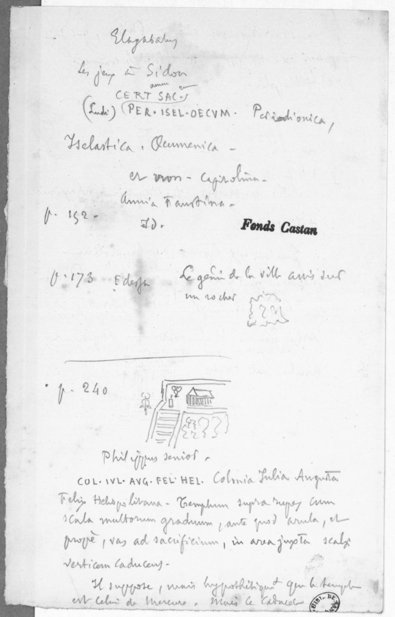 Elagabalus
Les jeux à Sidon
CERT. SAC.
(Ludi) (PER · ISEL · OECVM · Periodionica,
Iselastica · Œcumenica -
et non - Capitolina -
Annia Faustina -
p. 152 - Id.
Fonds Castan
p. 173 Edesse Le génie de la ville assis sur
un rocher
p. 240
Philippus senior -
COL · IVL · AVG · FEL · HEL · Colonia Julia Augusta
Felix Heliopolitana - Templum supra rupes cum
scala multorum graduum, ante quod arula, et
propè, vas ad sacrificium, in area juxta scalæ
verticem caduceus -
Il suppose, mais hypothétiqt que le temple
est celui de Mercure. Mais le Caducée
BIBL. DE